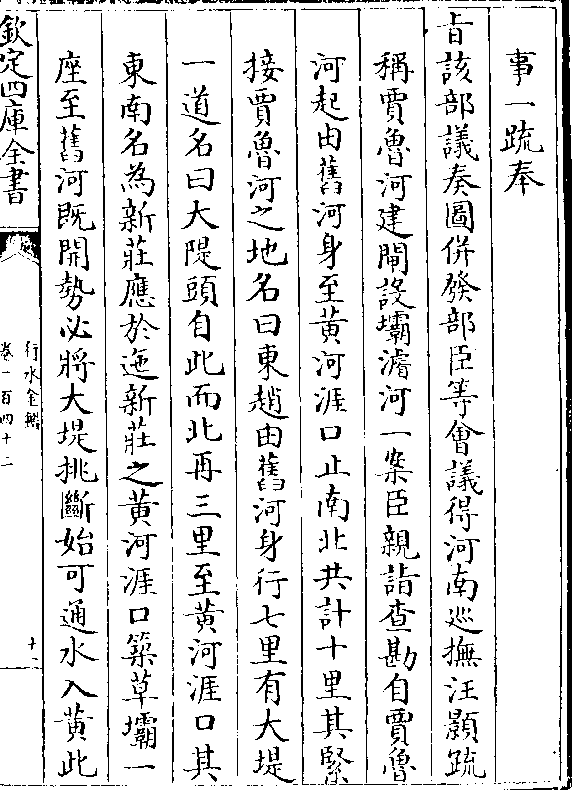 事一疏奉
旨該部議奏圖併發部臣等㑹議得河南廵撫汪顥疏
稱賈魯河建閘設壩濬河一案臣親詣查勘自賈魯
河起由舊河身至黄河涯口止南北共計十里其緊
接賈魯河之地名曰東趙由舊河身行七里有大堤
一道名曰大隄頭自此而北再三里至黄河涯口其
東南名為新莊應於迤新莊之黄河涯口築草壩一
座至舊河既開勢必將大堤挑斷始可通水入黄此
欽定四庫全書
行水金鑑
卷一百四十二
十一